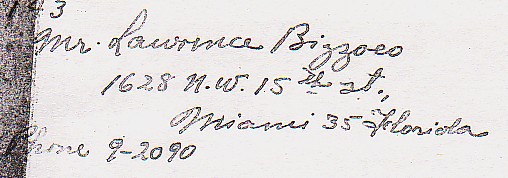 Mr. Lawrence Bizzoco
1628 N.W. 15th st.,
Miami 35 Florida
Phone 9-2090